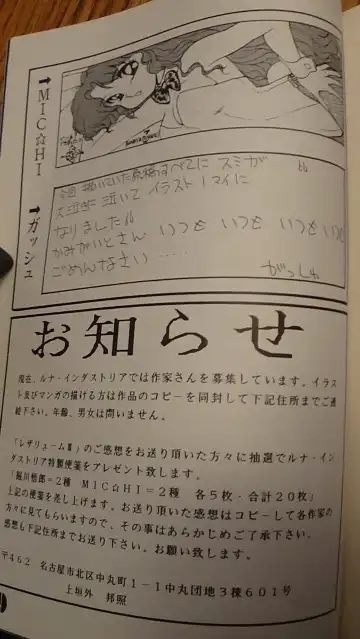 →MIC☆HI
→ガッシュ
大泣きに泣いて イラスト1マイに
なりました!!
かみがいとさん いつも いつも いつも いつも
ごめんなさい……
がっしゅ
お知らせ
現在、ルナ・インダストリアでは作家さんを募集しています。イラス
ト及びマンガの描ける方は作品のコピーを同封して下記住所までご連
絡下さい。年齢、男女は問いません。
「レザリュームⅡ」のご感想をお送り頂いた方々に抽選でルナ・イン
ダストリア特製便箋をプレゼント致します。
「堀川悟郎=2種 MIC☆HI=2種 各5枚・合計20枚」
上記の便箋を差し上げます。お送り頂いた感想はコピーして各作家の
方々に見てもらいますので、その事はあらかじめご了承下さい。
感想も下記住所までお送り下さい。お願い致します。
〒462 名古屋市北区中丸町1-1中丸団地3棟601号
上垣外 邦照